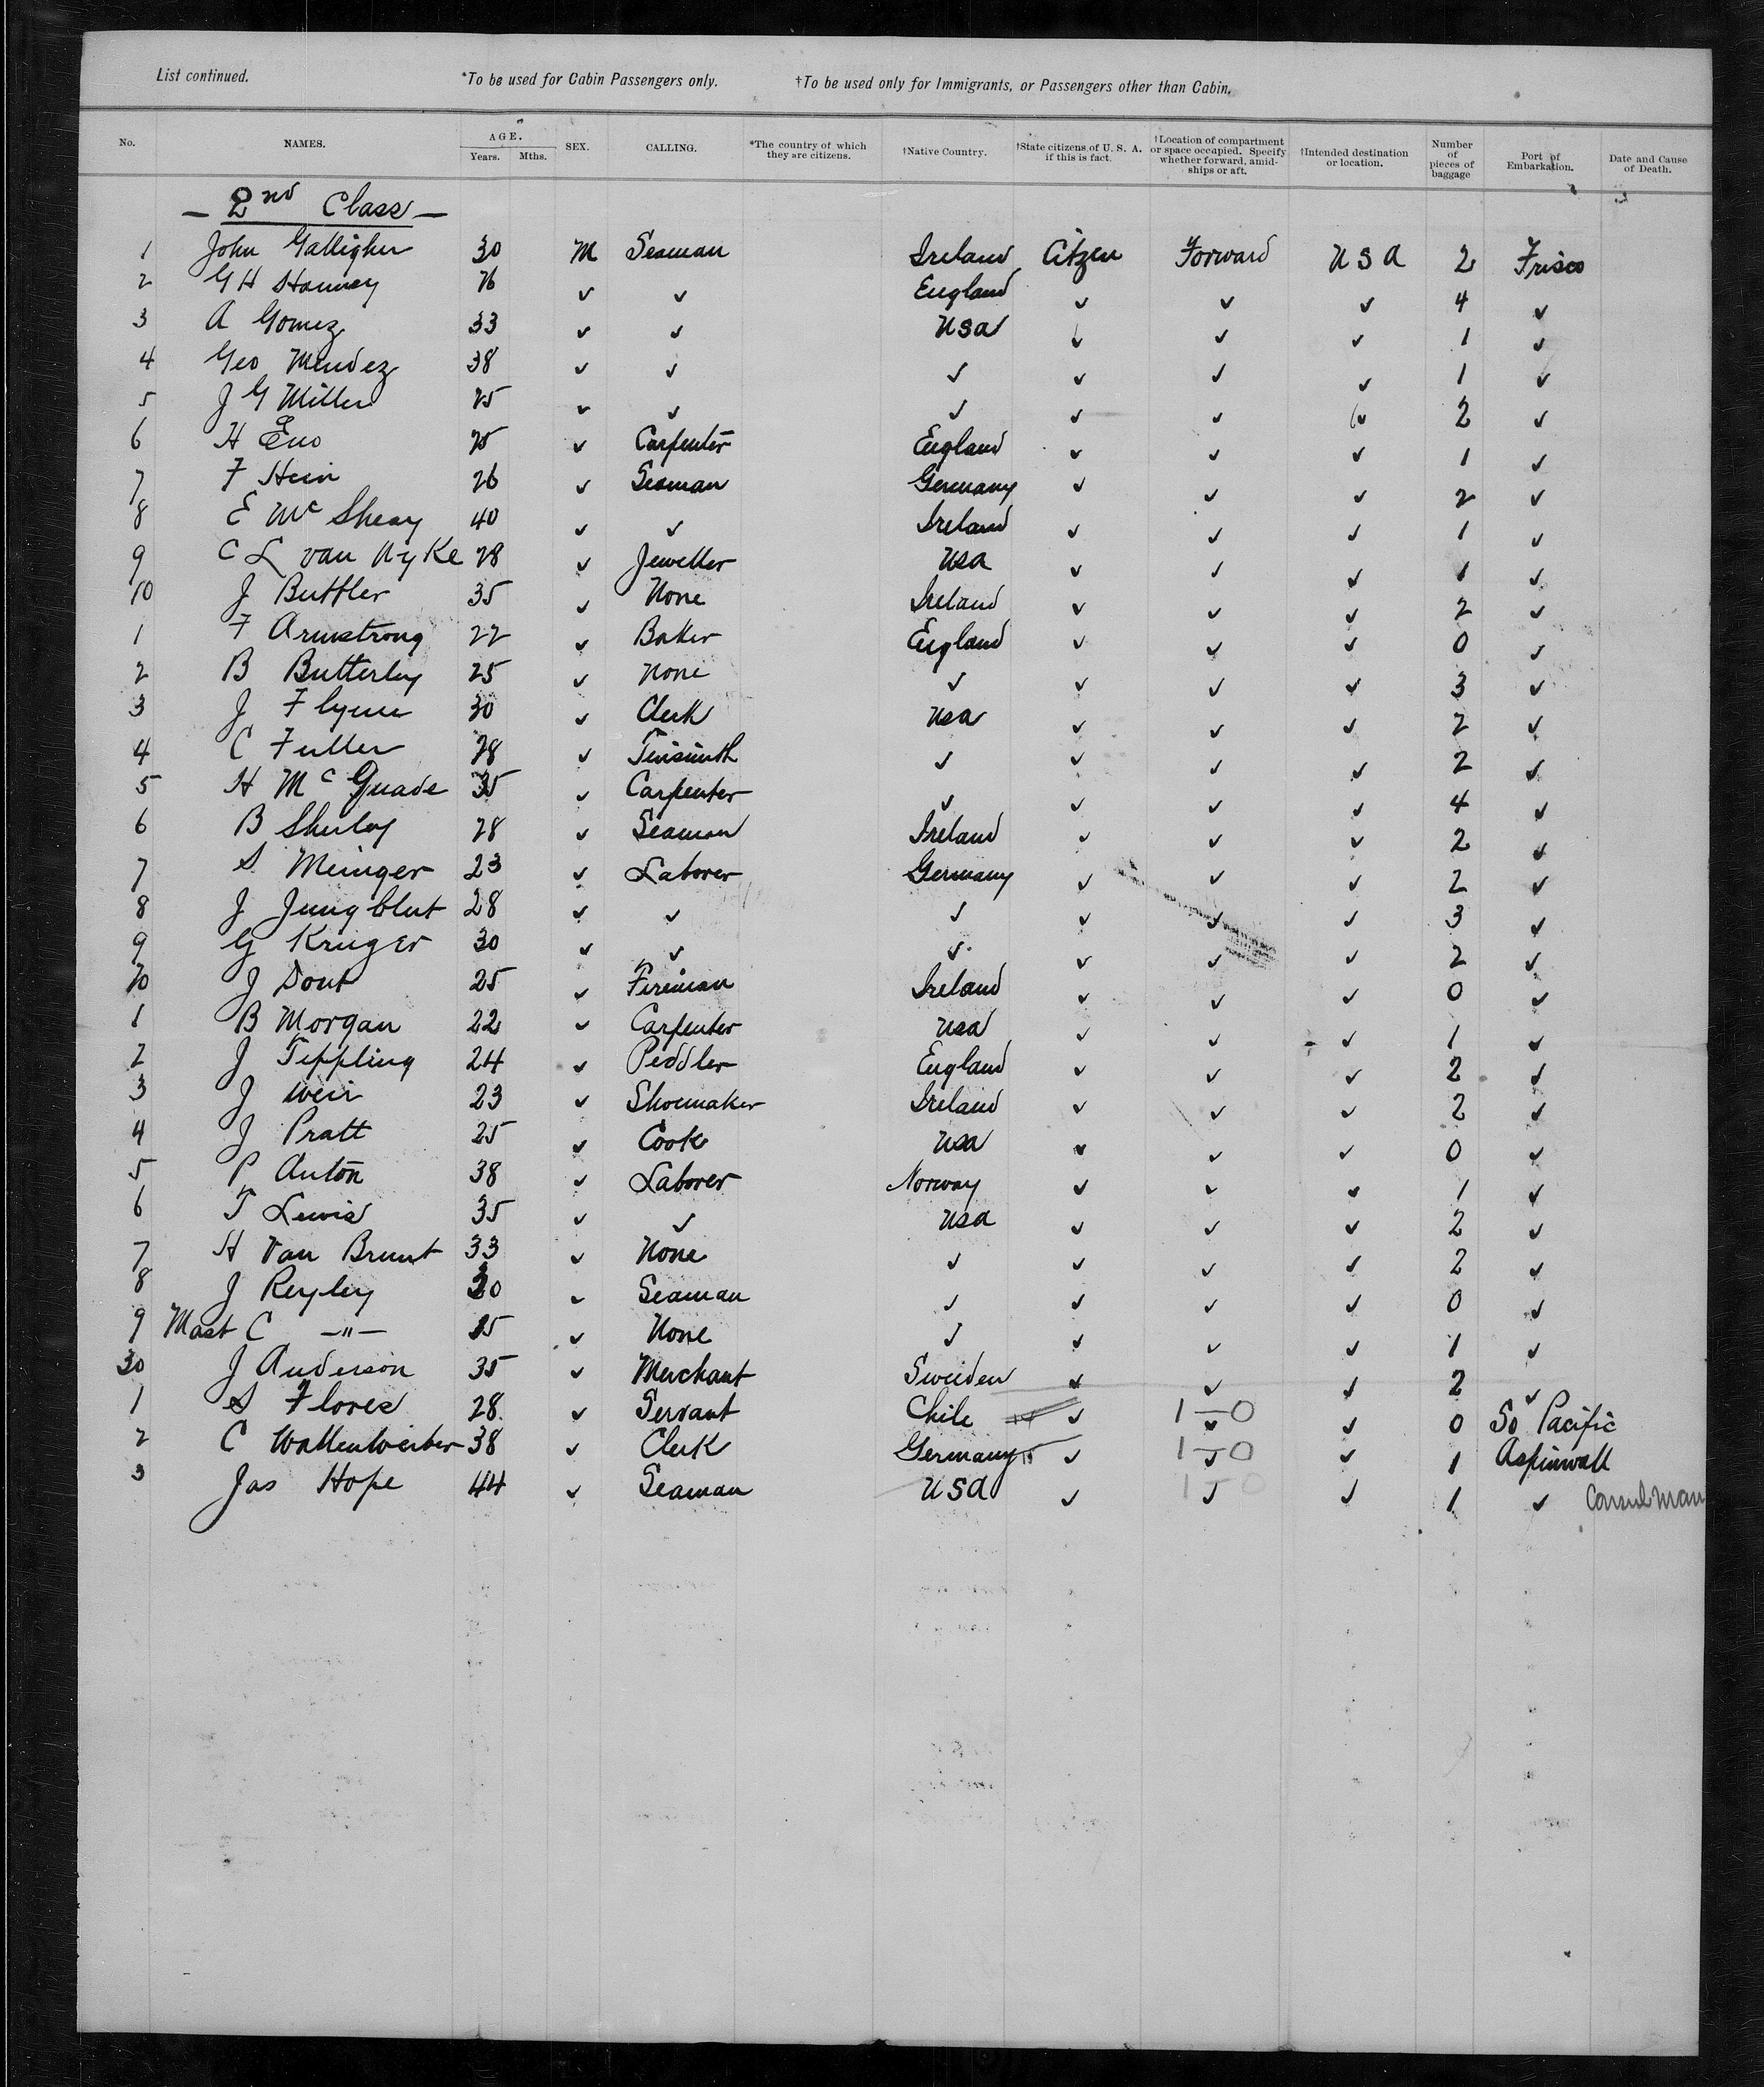 List continued. *To be used for Cabin Passengers only. †To be used only for Immigrants, or Passengers other than Cabin.
No. NAMES. AGE. Years. Mths. SEX. CALLING. *The country of which they are citizens. †Native Country. †State citizens of U. S. A. if this is fact. †Location of compartment or space occupied. Specify whether forward, amidships or aft. †Intended destination or location. Number of pieces of baggage Port of Embarkation. Date and Cause of Death.
— 2nd Class —
1 John Galligher 30 M Seaman Ireland Citzen Forward USA 2 Frisco
2 G H 26 ✓ ✓ England ✓ ✓ ✓ 4 ✓
3 A Gomez 33 ✓ ✓ USA ✓ ✓ ✓ 1 ✓
4 Geo Mendez 38 ✓ ✓ ✓ ✓ ✓ ✓ 1 ✓
5 J G Miller 25 ✓ ✓ ✓ ✓ ✓ ✓ 2 ✓
6 H Eno 25 ✓ Carpenter England ✓ ✓ ✓ 1 ✓
7 F Hein 26 ✓ Seaman Germany ✓ ✓ ✓ 2 ✓
8 E Mc Sheay 40 ✓ ✓ Ireland ✓ ✓ ✓ 1 ✓
9 C L van Nyke 28 ✓ Jeweller USA ✓ ✓ ✓ 1 ✓
10 J Buttler 35 ✓ None Ireland ✓ ✓ ✓ 2 ✓
1 F Armstrong 22 ✓ Baker England ✓ ✓ ✓ 0 ✓
2 B Butterley 25 ✓ None ✓ ✓ ✓ ✓ 3 ✓
3 J Flynn 30 ✓ Clerk USA ✓ ✓ ✓ 2 ✓
4 C Fuller 28 ✓ Tinsmith ✓ ✓ ✓ ✓ 2 ✓
5 H Mc Quade 35 ✓ Carpenter ✓ ✓ ✓ ✓ 4 ✓
6 B Shuley 28 ✓ Seaman Ireland ✓ ✓ ✓ 2 ✓
7 S Meinger 23 ✓ Laborer Germany ✓ ✓ ✓ 2 ✓
8 J Jungblut 28 ✓ ✓ ✓ ✓ ✓ ✓ 3 ✓
9 G Kruger 30 ✓ ✓ ✓ ✓ ✓ ✓ 2 ✓
20 J Dont 25 ✓ Fireman Ireland ✓ ✓ ✓ 0 ✓
1 B Morgan 22 ✓ Carpenter USA ✓ ✓ ✓ 1 ✓
2 J Teppling 24 ✓ Peddler England ✓ ✓ ✓ 2 ✓
3 J Weir 23 ✓ Shoemaker Ireland ✓ ✓ ✓ 2 ✓
4 J Pratt 25 ✓ Cook USA ✓ ✓ ✓ 0 ✓
5 P Anton 38 ✓ Laborer Norway ✓ ✓ ✓ 1 ✓
6 T Lewis 35 ✓ ✓ USA ✓ ✓ ✓ 2 ✓
7 H Van Brunt 33 ✓ None ✓ ✓ ✓ ✓ 2 ✓
8 J Reyley 30 ✓ Seaman ✓ ✓ ✓ ✓ 0 ✓
9 Mast C —"— 15 ✓ None ✓ ✓ ✓ ✓ 1 ✓
30 J Anderson 35 ✓ Merchant Sweiden ✓ ✓ ✓ 2 ✓
1 S Flores 28 ✓ Servant Chile ✓ 1—0 ✓ ✓ 0 So Pacific
2 C Wallenweiber 38 ✓ Clerk Germany ✓ 1—0 ✓ ✓ 1 Aspinwall
3 Jas Hope 44 ✓ Seaman USA ✓ 1—0 ✓ ✓ 1 ✓ Consulman